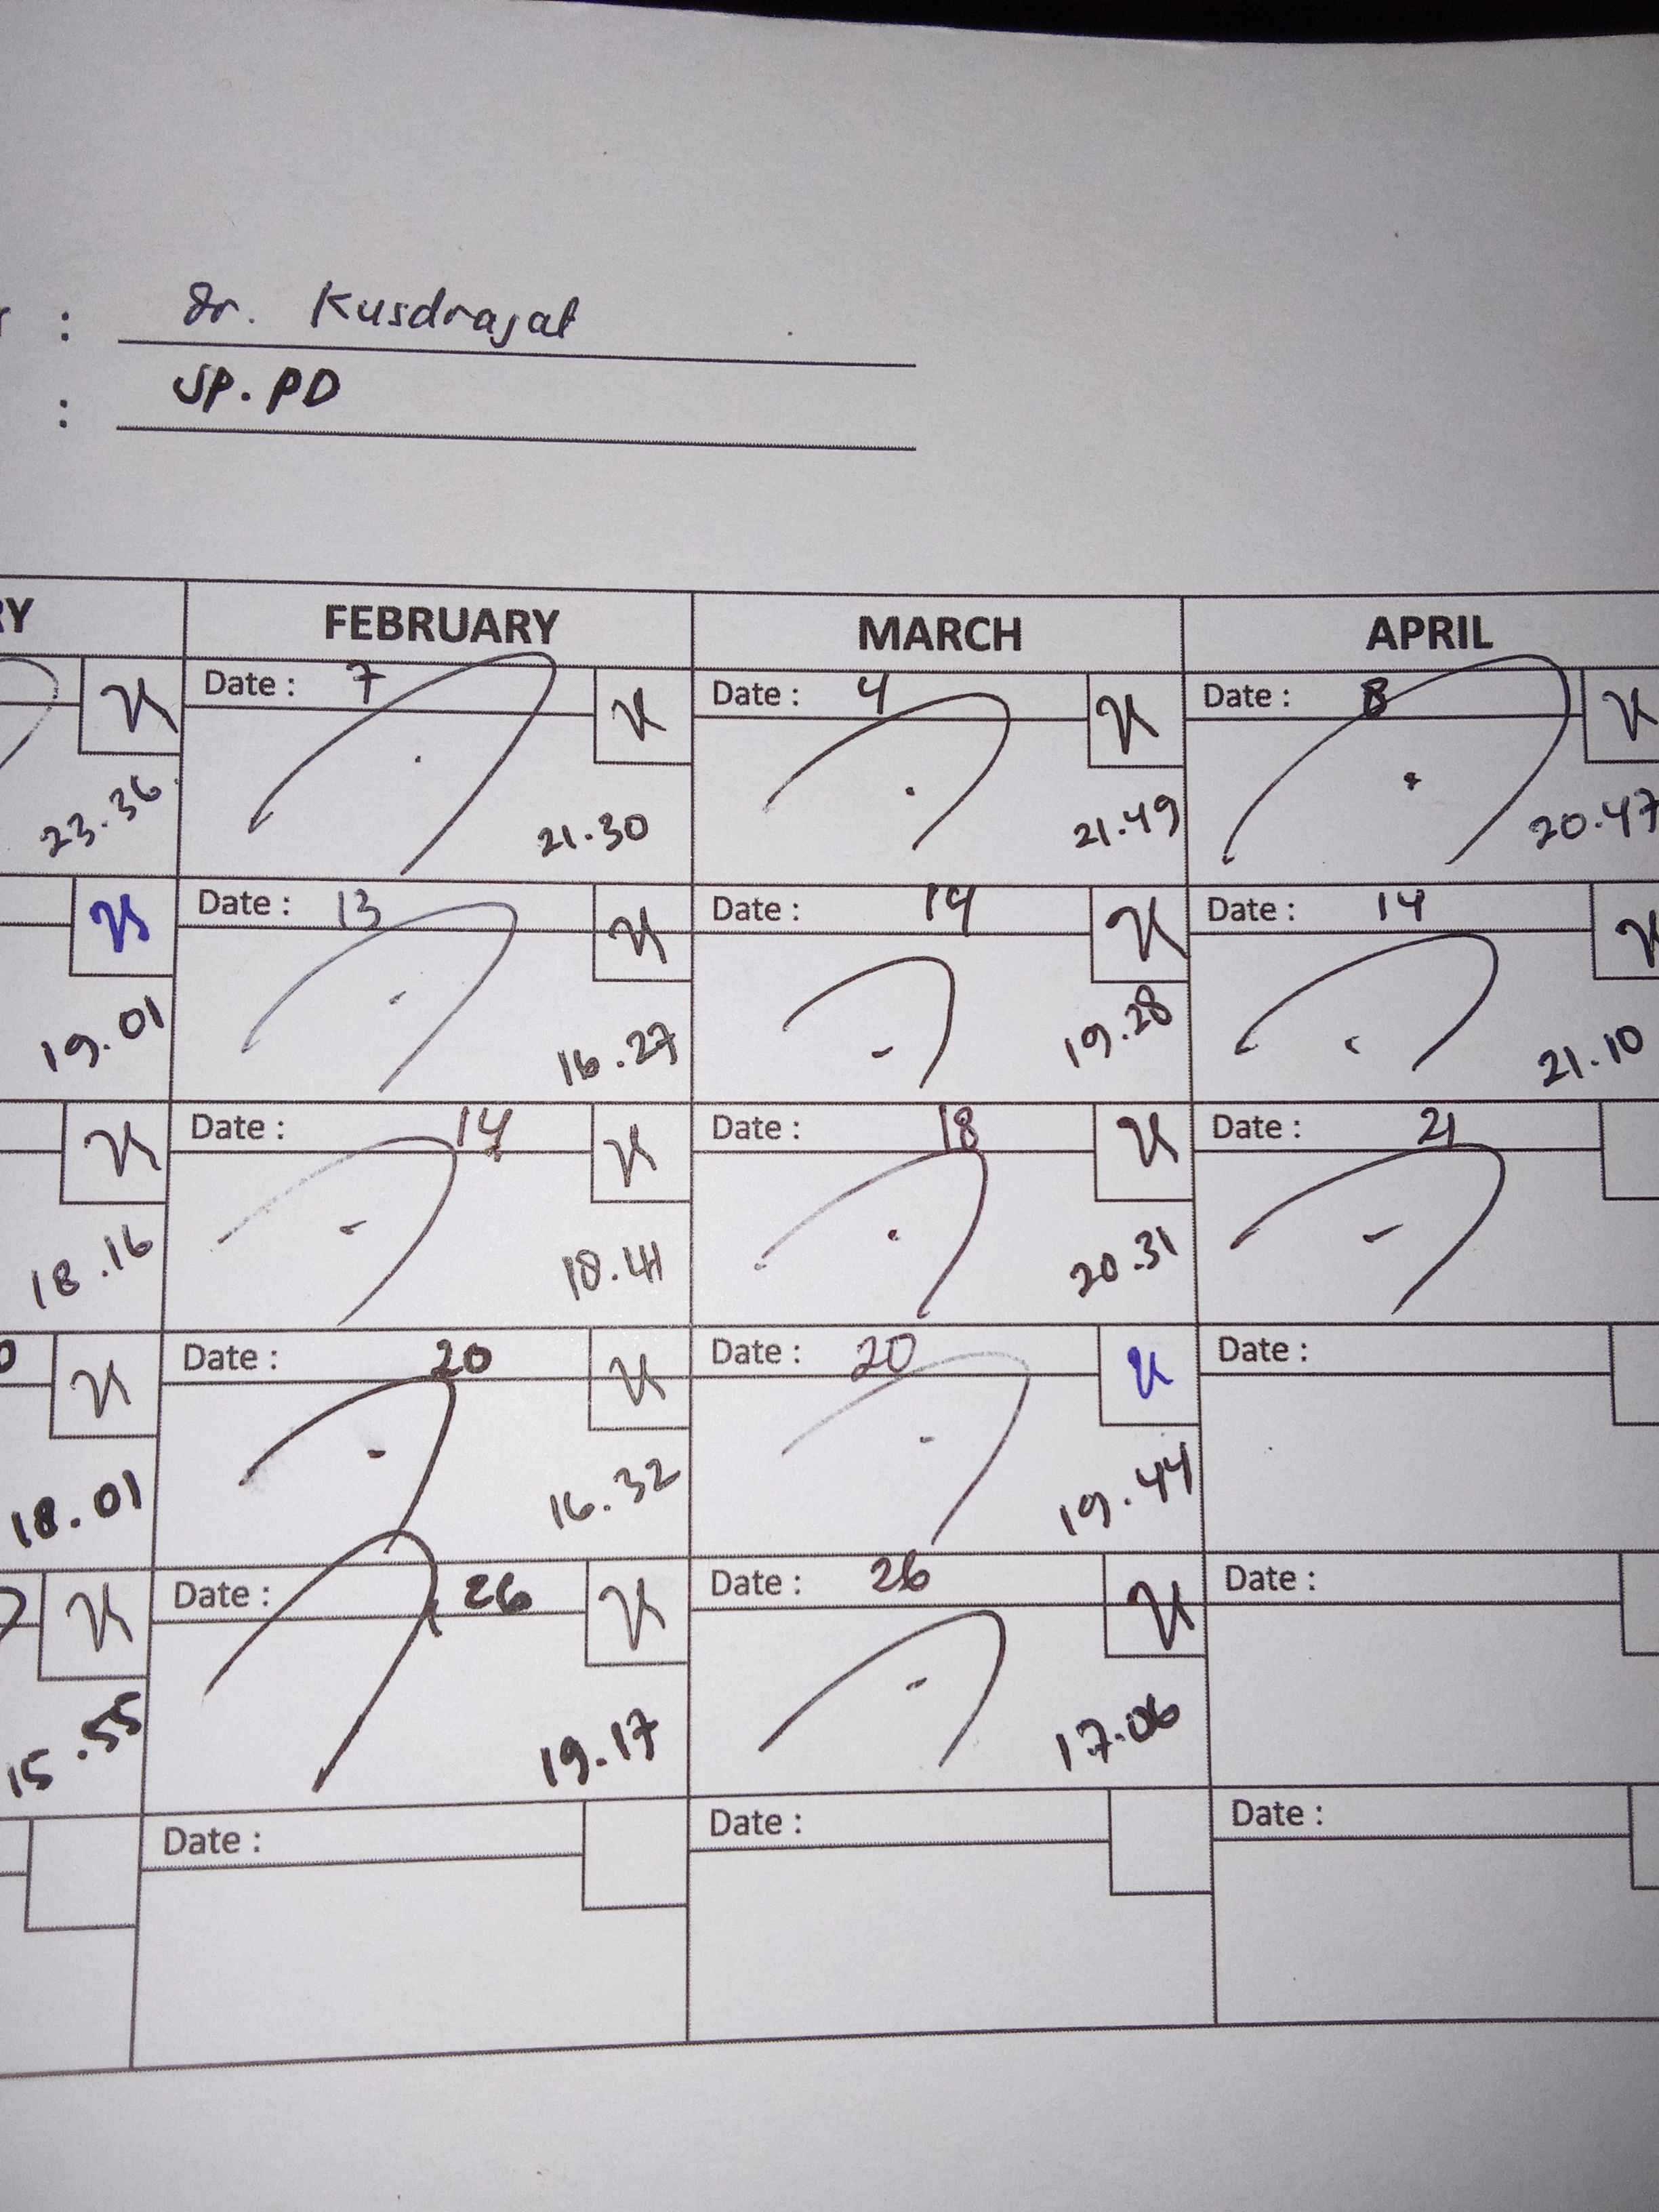 : dr. Kusdrajat
: SP.PD
RY FEBRUARY MARCH APRIL
Date : 7 Date : 4 Date : 8
23.36 21.30 21.49 20.47
Date : 13 Date : 14 Date : 14
19.01 16.27 19.28 21.10
Date : 14 Date : 18 Date : 21
18.16 18.41 20.31
Date : 20 Date : 20 Date :
18.01 16.32 19.44
Date : 26 Date : 26 Date :
15.55 19.17 17.06
Date : Date : Date :